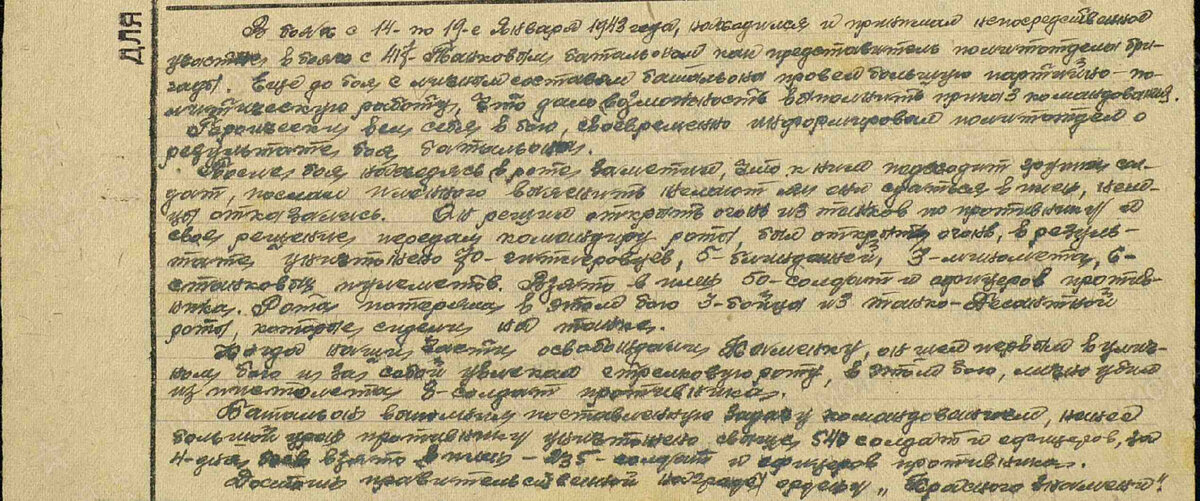 ДЛЯ
В боях с 14- по 19-е Января 1943 года, находился и принимал непосредственное
участие в боях с 417- Танковым батальоном как представитель политотдела бри-
гады. Еще до боя с личным составом батальона провел большую партийно-по-
литическую работу, что дало возможность выполнить приказ командования.
Героически вел себя в бою, своевременно информировал политотдел о
результатах боя батальона.
После боя находясь в роте заметил, что к ним подходит группа сол-
дат, послал пленного выяснить желают ли они сдаться в плен, нем-
цы отказались. Он решил открыть огонь из танков по противнику и
свое решение передал командиру роты, был открыт огонь, в резуль-
тате уничтожено 70- гитлеровцев, 5- блиндажей, 3- миномета, 6-
станковых пулеметов. Взято в плен 50- солдат и офицеров против-
ника. Рота потеряла в этом бою 3- бойца из танко-десантной
роты, которые сидели на танке.
Когда наши части освобождали Каменку, он шел первым в улич-
ном бою и за собой увлекал стрелковую роту, в этом бою, лично убил
из пистолета 3- солдат противника.
Батальон выполнил поставленную задачу командованием, нанес
большой урон противнику уничтожено свыше 540 солдат и офицеров, за
4-дня боев взято в плен - 235- солдат и офицеров противника.
Достоин правительственной награды ордену „Красного Знамени".